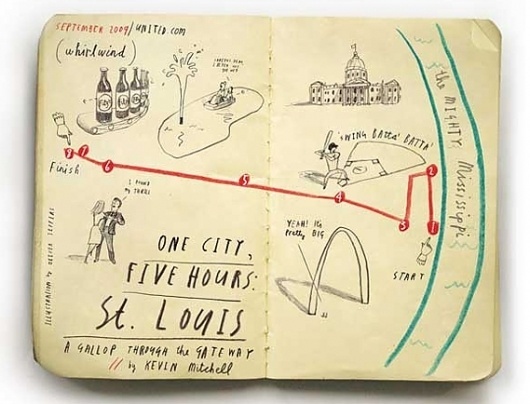 SEPTEMBER 2009/UNITED.COM
(whirlwind)
8
7
6
Finish
5
4
3
2
1
START
'SWING BATTA' BATTA'
the MIGHTY Mississippi
YEAH! It's
Pretty BIG
ONE CITY,
FIVE HOURS:
St. LOUIS
A GALLOP THROUGH the GATEWAY
// by KEVIN Mitchell
ILLUSTRATION by OLIVER JEFFERS